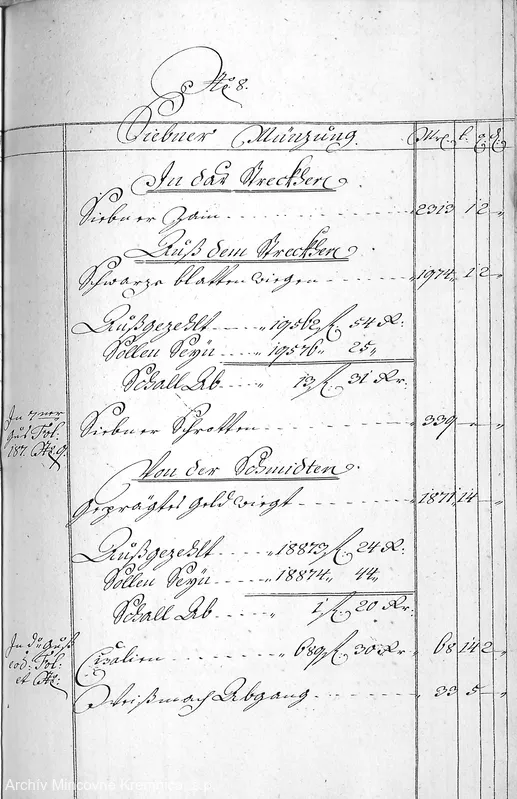 No 8.
Siebner Münzung. Mrc. l. q. d.
In das Streckhen
Siebner Zain „ 2313 12 „
Auß dem Streckhen
Schwarze blatten wiegen „ 1974 12 „
Außgezehlt „ 19562 f. 54 Kr.
Sollen Seyn „ 19576 „ 25 „
Schall Ab „ 13 f. 31 Kr.
In 7ner
guß Fol:
187. No 9.
Siebner Schrotten „ 339 „ „
Von der Schmidten
Geprägtes Geld wiegt „ 1871 14 „
Außgezehlt „ 18873 f. 24 Kr.
Sollen Seyn „ 18874 „ 44 „
Schall Ab „ 1 f. 20 Kr.
In d. guß
eod: Fol:
et No:
Cisalien „ 689 f. 30 Kr „ 68 14 2 „
Weißmach Abgang „ 33 5 „
Archív Mincovne Kremnica, š.p.